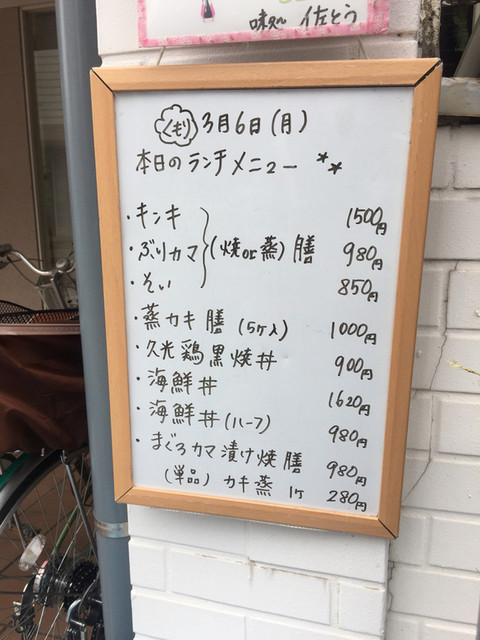 味処 佐とう
くもり 3月6日(月)
本日のランチメニュー **
・キンキ 1500円
・ぶりカマ (焼or蒸)膳 980円
・そい 850円
・蒸カキ膳 (5ケ入) 1000円
・久光鶏黒焼丼 900円
・海鮮丼 1620円
・海鮮丼(ハーフ) 980円
・まぐろカマ漬け焼膳 980円
(単品) カキ蒸 1ケ 280円